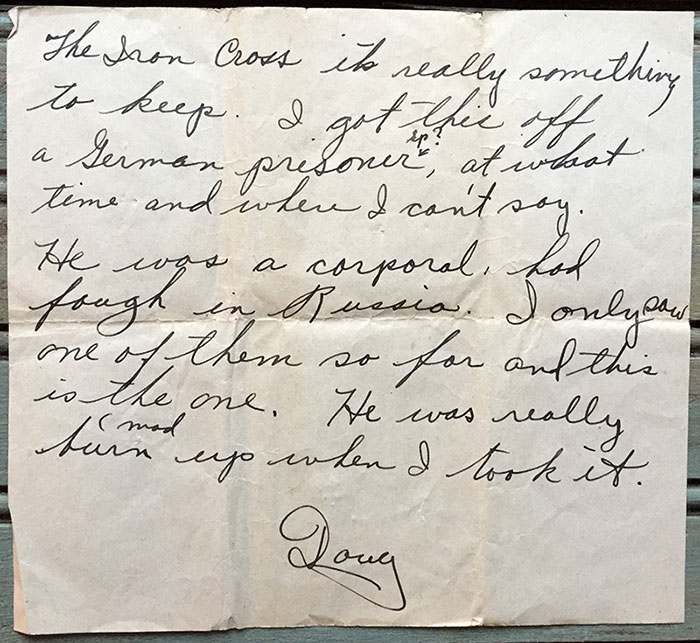 The Iron Cross its really something
to keep. I got this off
a German prisoner sp?, at what
time and where I can't say.
He was a corporal, had
fough in Russia. I only saw
one of them so far and this
is the one. He was really
burn (mad up when I took it.
Doug